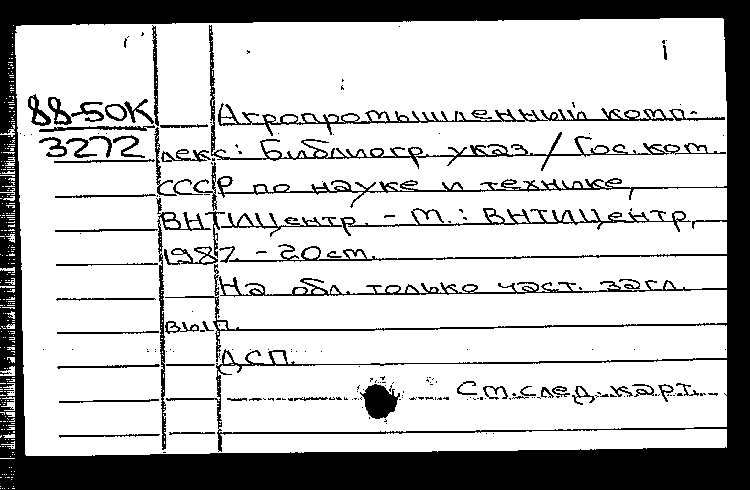 1
88-50К
3272
Агропромышленный комп-
лекс: Библиогр. указ. / Гос. ком.
СССР по науке и технике,
ВНТИЦентр. - М.: ВНТИЦентр,
1987. - 20 см.
На обл. только част. загл.
вып.
ДСП.
См. след. карт.